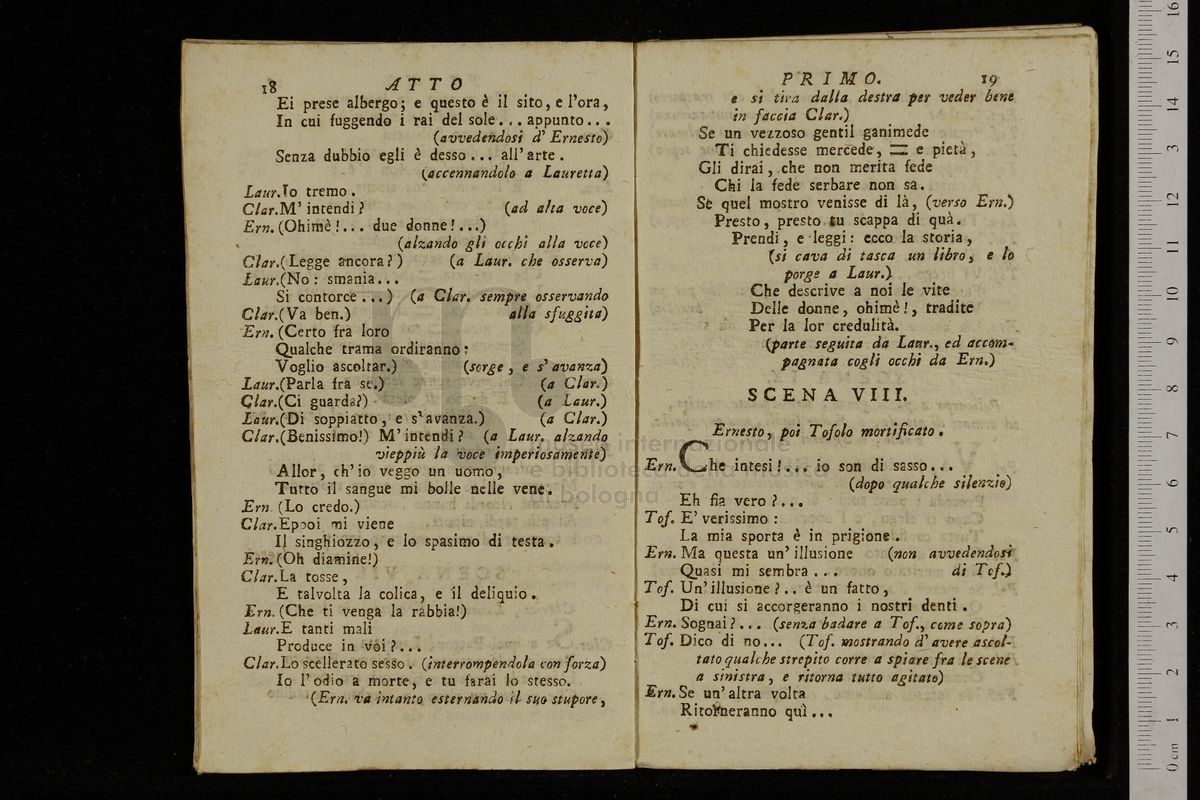 18 ATTO
Ei prese albergo; e questo è il sito, e l'ora,
In cui fuggendo i rai del sole... appunto...
(avvedendosi d' Ernesto)
Senza dubbio egli è desso... all'arte.
(accennandolo a Lauretta)
Laur. Io tremo.
Clar. M' intendi? (ad alta voce)
Ern. (Ohimè!... due donne!...)
(alzando gli occhi alla voce)
Clar. (Legge ancora?) (a Laur. che osserva)
Laur. (No: smania...
Si contorce...) (a Clar. sempre osservando
Clar. (Va ben.) alla sfuggita)
Ern. (Certo fra loro
Qualche trama ordiranno:
Voglio ascoltar.) (sorge, e s' avanza)
Laur. (Parla fra se.) (a Clar.)
Clar. (Ci guarda?) (a Laur.)
Laur. (Di soppiatto, e s'avanza.) (a Clar.)
Clar. (Benissimo!) M' intendi? (a Laur. alzando
vieppiù la voce imperiosamente)
Allor, ch'io veggo un uomo,
Tutto il sangue mi bolle nelle vene.
Ern (Lo credo.)
Clar. Eppoi mi viene
Il singhiozzo, e lo spasimo di testa.
Ern. (Oh diamine!)
Clar. La tosse,
E talvolta la colica, e il deliquio.
Ern. (Che ti venga la rabbia!)
Laur. E tanti mali
Produce in voi?...
Clar. Lo scellerato sesso. (interrompendola con forza)
Io l'odio a morte, e tu farai lo stesso.
(Ern. va intanto esternando il suo stupore,
PRIMO. 19
e si tira dalla destra per veder bene
in faccia Clar.)
Se un vezzoso gentil ganimede
Ti chiedesse mercede, = e pietà,
Gli dirai, che non merita fede
Chi la fede serbare non sa.
Se quel mostro venisse di là, (verso Ern.)
Presto, presto tu scappa di quà.
Prendi, e leggi: ecco la storia,
(si cava di tasca un libro, e lo
porge a Laur.)
Che descrive a noi le vite
Delle donne, ohimè!, tradite
Per la lor credulità.
(parte seguita da Laur., ed accom-
pagnata cogli occhi da Ern.)
SCENA VIII.
Ernesto, poi Tofolo mortificato.
Ern. Che intesi!... io son di sasso...
(dopo qualche silenzio)
Eh fia vero?...
Tof. E' verissimo:
La mia sporta è in prigione.
Ern. Ma questa un' illusione (non avvedendosi
Quasi mi sembra... di Tof.)
Tof. Un' illusione?.. è un fatto,
Di cui si accorgeranno i nostri denti.
Ern. Sognai?... (senza badare a Tof., come sopra)
Tof. Dico di no... (Tof. mostrando d' avere ascol-
tato qualche strepito corre a spiare fra le scene
a sinistra, e ritorna tutto agitato)
Ern. Se un' altra volta
Ritorneranno quì...
museo internazionale
e biblioteca della musica
di bologna
0 cm 1 2 3 4 5 6 7 8 9 10 11 12 13 14 15 16